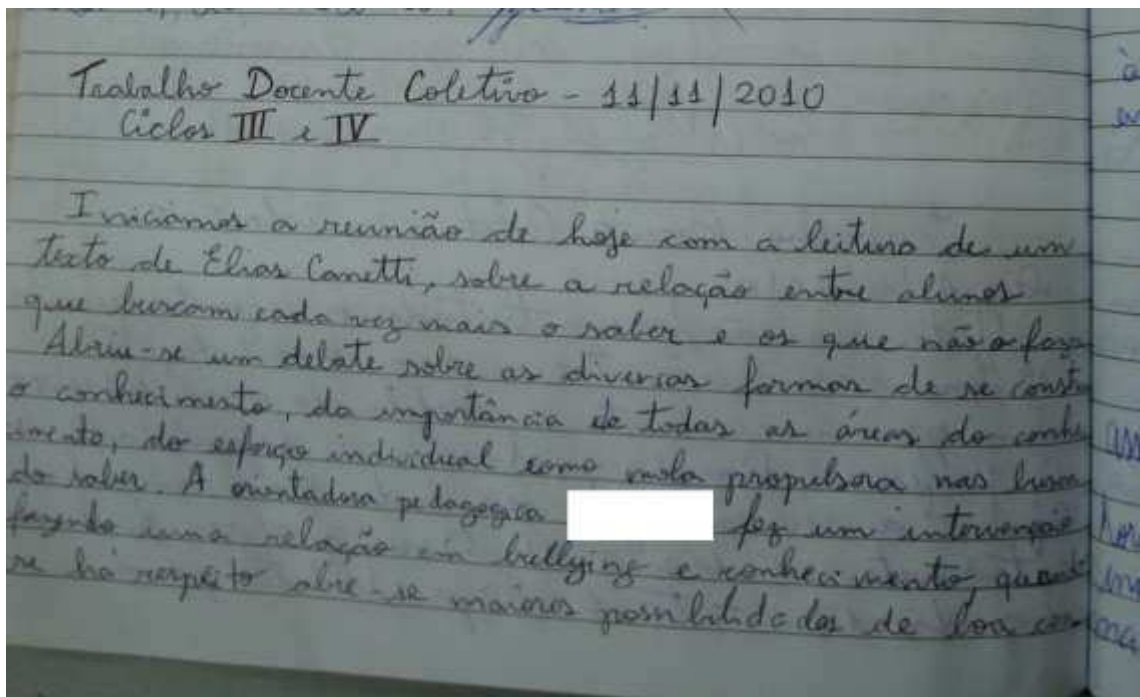 Trabalho Docente Coletivo - 11/11/2010
Ciclos III e IV
Iniciamos a reunião de hoje com a leitura de um
texto de Elias Canetti, sobre a relação entre alunos
que buscam cada vez mais o saber e os que não o faze
Abriu-se um debate sobre as diversas formas de se const
o conhecimento, da importância de todas as áreas do conhe
imento, do esforço individual como mola propulsora nas busca
do saber. A orientadora pedagógica fez um intervenção
fazendo uma relação em bullying e conhecimento, quand
se há respeito abre-se maiores possibilidades de boa con